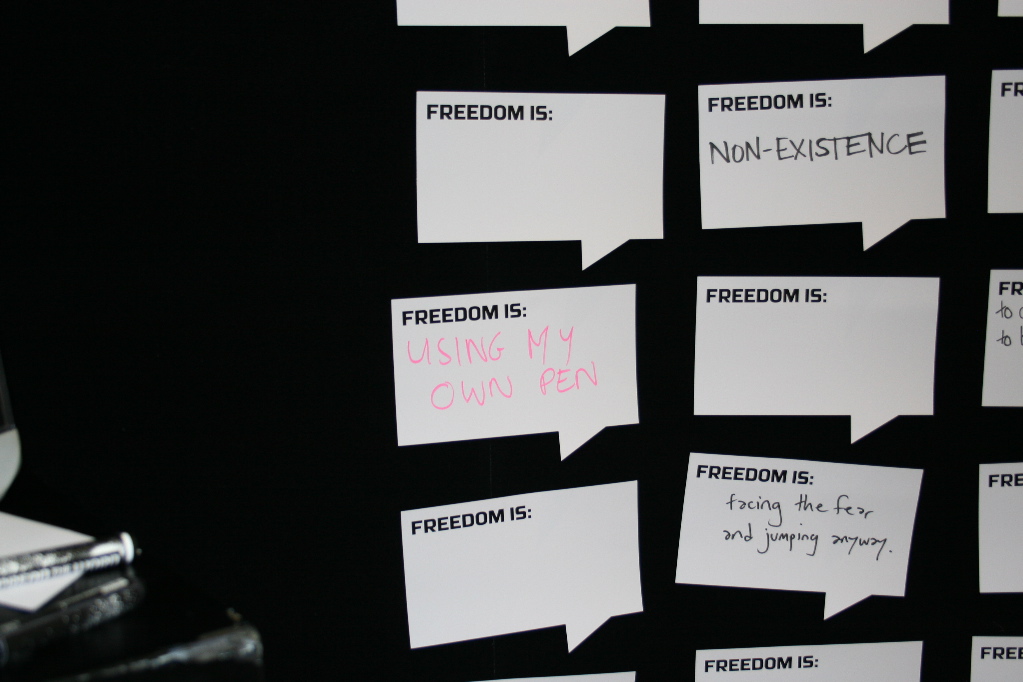 FREEDOM IS:
FREEDOM IS:
NON-EXISTENCE
FR
FREEDOM IS:
USING MY
OWN PEN
FREEDOM IS:
FR
to
to
FREEDOM IS:
FREEDOM IS:
facing the fear
and jumping anyway.
FREE
FREEDOM IS:
FREE